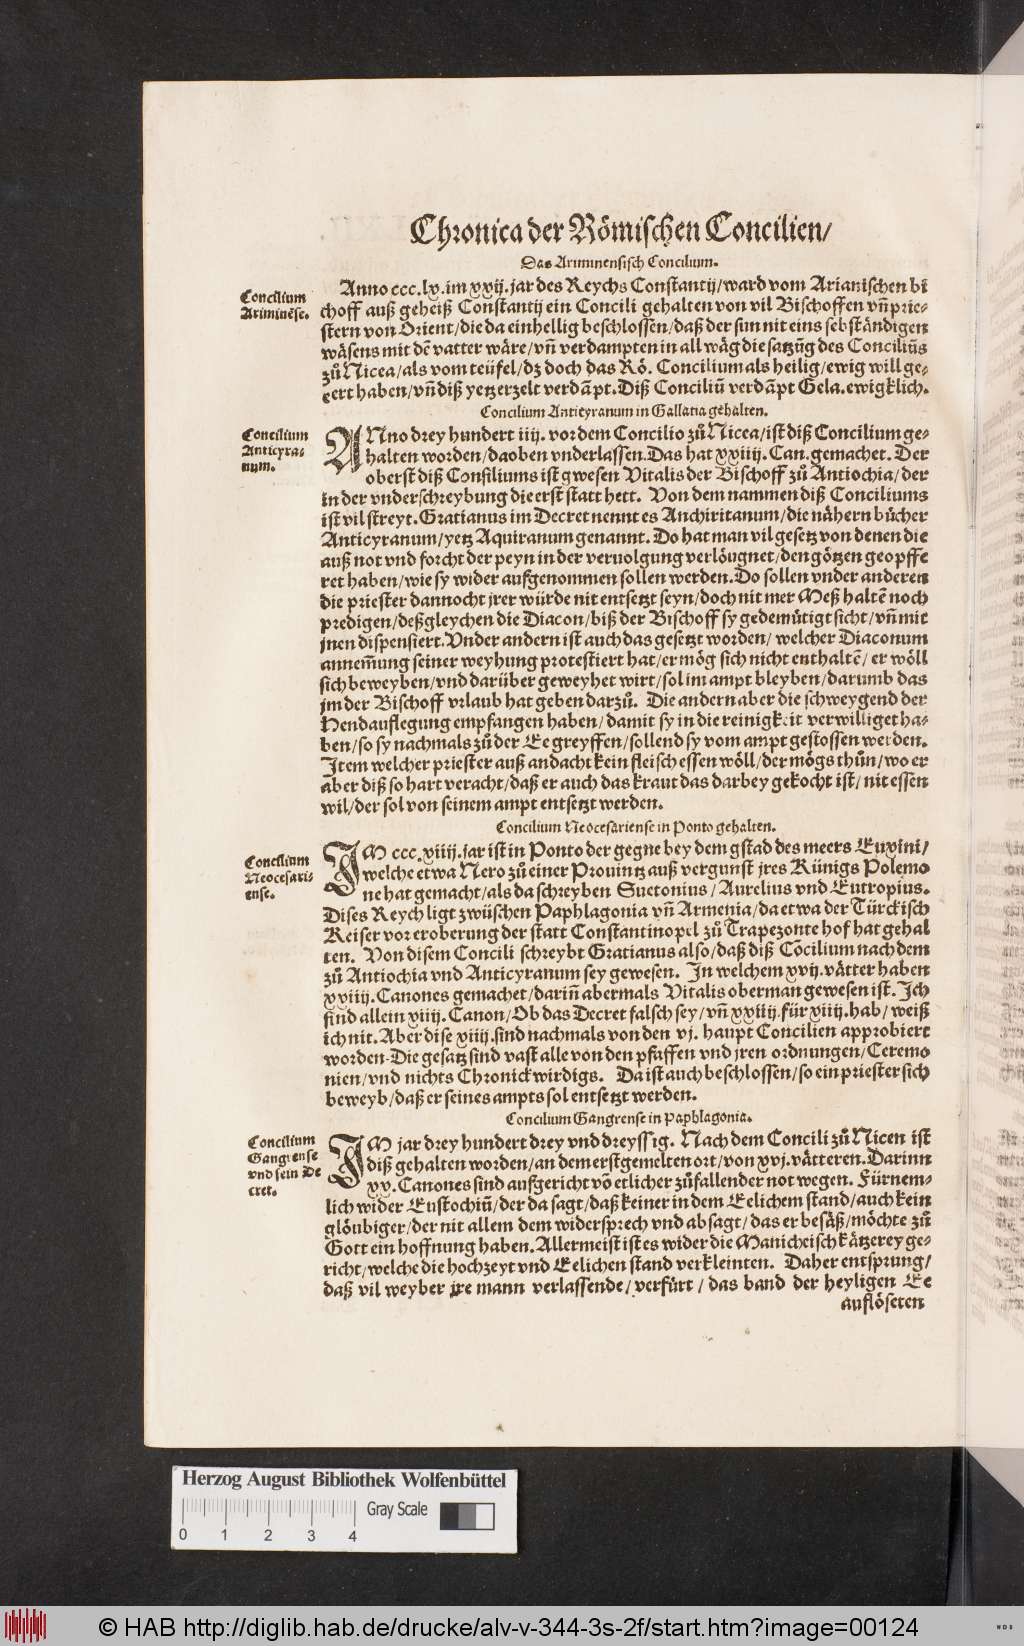 Chronica der Römischen Concilien/
Das Ariminensisch Concilium.
Concilium
Ariminēse.
Anno ccc.lx.im xxij.jar des Reychs Constantij/ward vom Arianischen bi
schoff auß geheiß Constantij ein Concili gehalten von vil Bischoffen vn̄ prie-
stern von Orient/die da einhellig beschlossen/daß der sun nit eins selbständigen
wäsens mit dē vatter wäre/vn̄ verdampten in all wäg die satzūg des Conciliūs
zů Nicea/als vom teüfel/dz doch das Rö. Concilium als heilig/ewig will ge-
eert haben/vn̄ diß yetz erzelt verdāpt. Diß Conciliū verdāpt Gela.ewigklich.
Concilium Anticyranum in Gallatia gehalten.
Concilium
Anticyra-
num.
ANno drey hundert iiij. vor dem Concilio zů Nicea/ist diß Concilium ge-
halten worden/da oben vnderlassen. Das hat xxiiij. Can. gemachet. Der
oberst diß Consiliums ist gwesen Vitalis der Bischoff zů Antiochia/der
in der vnderschreybung die erst statt hett. Von dem nammen diß Conciliums
ist vil streyt. Gratianus im Decret nennt es Anchiritanum/die nähern bůcher
Anticyranum/yetz Aquiranum genannt. Do hat man vil gesetz von denen die
auß not vnd forcht der peyn in der veruolgung verlöugnet/den götzen geopffe
ret haben/wie sy wider aufgenommen sollen werden. Do sollen vnder anderen
die priester dannocht jrer würde nit entsetzt seyn/doch nit mer Meß haltē noch
predigen/deßgleychen die Diacon/biß der Bischoff sy gedemütigt sicht/vn̄ mit
jnen dispensiert. Vnder andern ist auch das gesetzt worden/ welcher Diaconum
annem̄ung seiner weyhung protestiert hat/er mög sich nicht enthaltē/ er wöll
sich beweyben/vnd darüber geweyhet wirt/sol im ampt bleyben/darumb das
jm der Bischoff vrlaub hat geben darzů. Die andern aber die schweygend der
Hendauflegung empfangen haben/ damit sy in die reinigkeit verwilliget ha-
ben/so sy nachmals zů der Ee greyffen/sollend sy vom ampt gestossen werden.
Item welcher priester auß andacht kein fleisch essen wöll/der mögs thůn/wo er
aber diß so hart veracht/daß er auch das kraut das darbey gekocht ist/ nit essen
wil/der sol von seinem ampt entsetzt werden.
Concilium Neocesariense in Ponto gehalten.
Concilium
Neocesari-
ense.
IM ccc.xiiij.jar ist in Ponto der gegne bey dem gstad des meers Euxini/
welche etwa Nero zů einer Prouintz auß vergunst jres Künigs Polemo
ne hat gemacht/als da schreyben Suetonius/ Aurelius vnd Eutropius.
Dises Reych ligt zwüschen Paphlagonia vn̄ Armenia/da etwa der Türckisch
Keiser vor eroberung der statt Constantinopel zů Trapezonte hof hat gehal
ten. Von disem Concili schreybt Gratianus also/daß diß Cōcilium nach dem
zů Antiochia vnd Anticyranum sey gewesen. In welchem xvij.vätter haben
xviiij. Canones gemachet/darin̄ abermals Vitalis oberman gewesen ist. Ich
find allein xiiij. Canon/Ob das Decret falsch sey/vn̄ xviiij.für xiiij.hab/ weiß
ich nit. Aber dise xiiij.sind nachmals von den vj. haupt Concilien approbiert
worden. Die gesatz sind vast alle von den pfaffen vnd jren ordnungen/Ceremo
nien/vnd nichts Chronickwirdigs. Da ist auch beschlossen/so ein priester sich
beweyb/daß er seines ampts sol entsetzt werden.
Concilium Gangrense in Paphlagonia.
Concilium
Gangrense
vnd sein De
cret.
IM jar drey hundert drey vnd dreyssig. Nach dem Concili zů Nicen ist
diß gehalten worden/an dem erstgemelten ort/von xvj.vätteren. Darinn
xx. Canones sind aufgericht vō etlicher zůfallender not wegen. Fürnem-
lich wider Eustochiū/der da sagt/daß keiner in dem Eelichem stand/auch kein
glöubiger/der nit allem dem widersprech vnd absagt/das er besäß/möchte zů
Gott ein hoffnung haben. Allermeist ist es wider die Manicheisch kätzerey ge-
richt/welche die hochzeyt vnd Eelichen stand verkleinten. Daher entsprung/
daß vil weyber jre mann verlassende/verfürt/das band der heyligen Ee
auflöseten
Herzog August Bibliothek Wolfenbüttel
0 1 2 3 4
Gray Scale
© HAB http://diglib.hab.de/drucke/alv-v-344-3s-2f/start.htm?image=00124